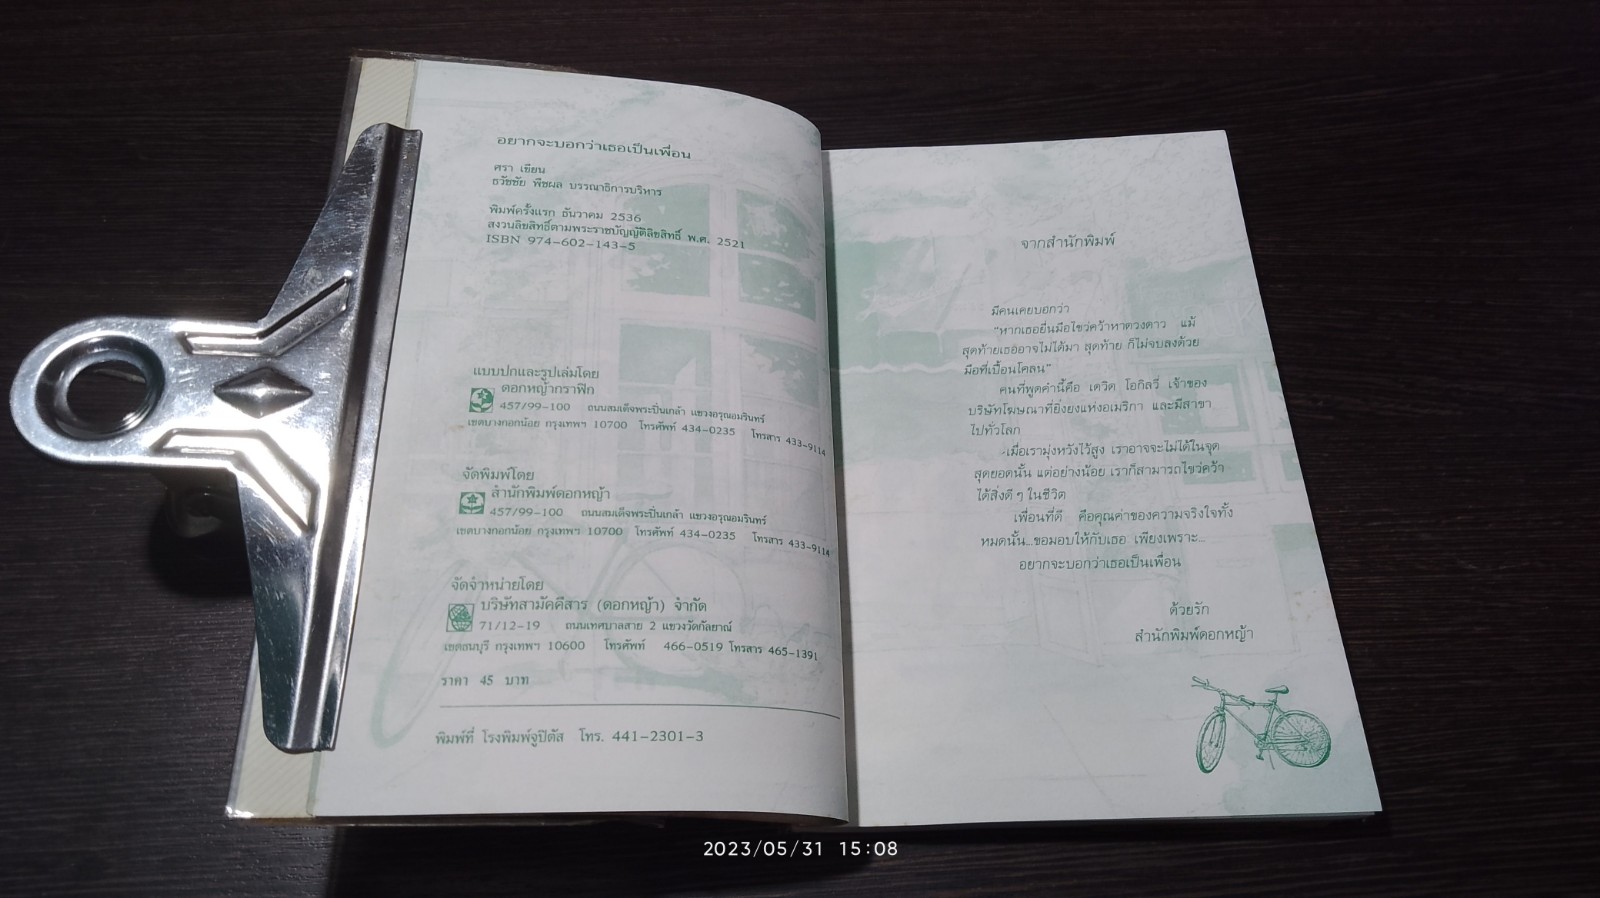 อยากจะบอกว่าเธอเป็นเพื่อน
ศรา เขียน
ธวัชชัย พืชผล บรรณาธิการบริหาร
พิมพ์ครั้งแรก ธันวาคม 2536
สงวนลิขสิทธิ์ตามพระราชบัญญัติลิขสิทธิ์ พ.ศ. 2521
ISBN 974-602-143-5
แบบปกและรูปเล่มโดย
ดอกหญ้ากราฟิก
457/99-100 ถนนสมเด็จพระปิ่นเกล้า แขวงอรุณอมรินทร์
เขตบางกอกน้อย กรุงเทพฯ 10700 โทรศัพท์ 434-0235 โทรสาร 433-9114
จัดพิมพ์โดย
สำนักพิมพ์ดอกหญ้า
457/99-100 ถนนสมเด็จพระปิ่นเกล้า แขวงอรุณอมรินทร์
เขตบางกอกน้อย กรุงเทพฯ 10700 โทรศัพท์ 434-0235 โทรสาร 433-9114
จัดจำหน่ายโดย
บริษัทสามัคคีสาร (ดอกหญ้า) จำกัด
71/12-19 ถนนเทศบาลสาย 2 แขวงวัดกัลยาณ์
เขตธนบุรี กรุงเทพฯ 10600 โทรศัพท์ 466-0519 โทรสาร 465-1391
ราคา 45 บาท
พิมพ์ที่ โรงพิมพ์จูปีตัส โทร. 441-2301-3
จากสำนักพิมพ์
มีคนเคยบอกว่า
"หากเธอยื่นมือไขว่คว้าหาดวงดาว แม้
สุดท้ายเธออาจไม่ได้มา สุดท้าย ก็ไม่จบลงด้วย
มือที่เปื้อนโคลน"
คนที่พูดคำนี้คือ เดวิด โอกิลวี่ เจ้าของ
บริษัทโฆษณาที่ยิ่งยงแห่งอเมริกา และมีสาขา
ไปทั่วโลก
-เมื่อเรามุ่งหวังไว้สูง เราอาจจะไม่ได้ในจุด
สุดยอดนั้น แต่อย่างน้อย เราก็สามารถไขว่คว้า
ได้สิ่งดีๆ ในชีวิต
เพื่อนที่ดี คือคุณค่าของความจริงใจทั้ง
หมดนั้น...ขอมอบให้กับเธอ เพียงเพราะ...
อยากจะบอกว่าเธอเป็นเพื่อน
ด้วยรัก
สำนักพิมพ์ดอกหญ้า
2023/05/31 15:08